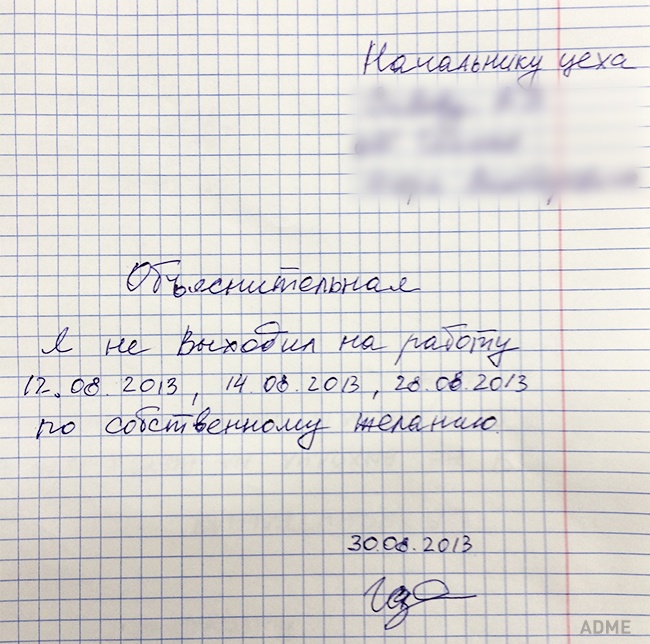 Начальнику цеха
Объяснительная
Я не выходил на работу
12.08.2013, 14.08.2013, 28.08.2013
по собственному желанию.
30.08.2013
ADME